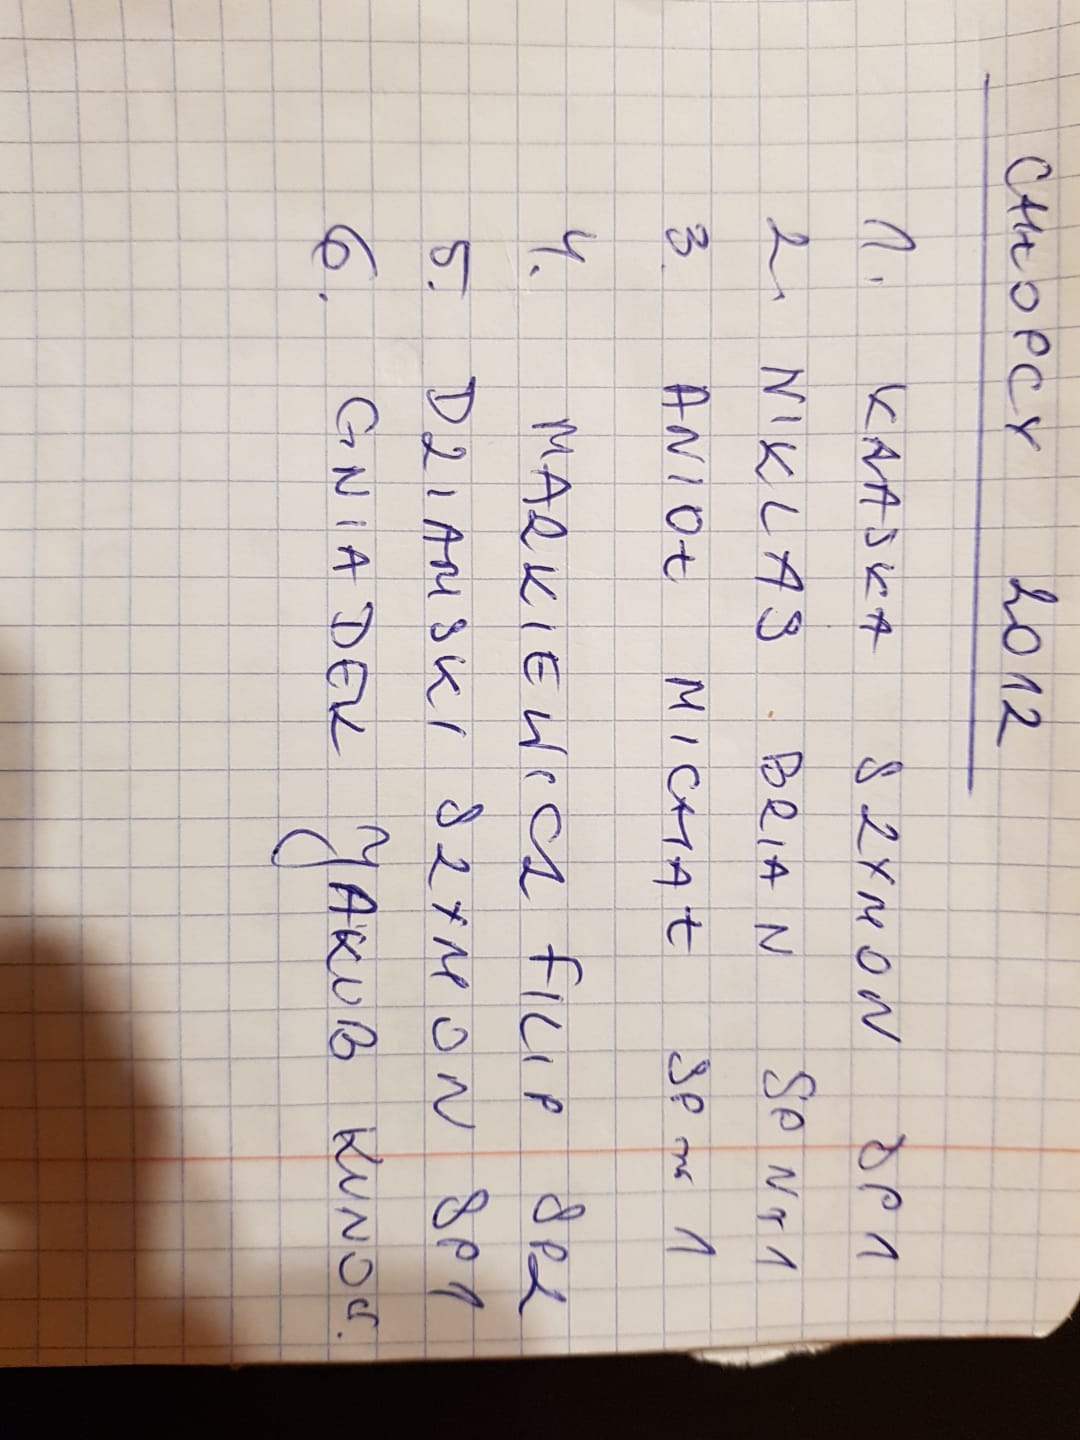 CHŁOPCY 2012
1. KAASKA SZYMON SP1
2. NIKLAS BRIAN SP Nr 1
3. ANIOŁ MICHAŁ SP nr 1
4. MARKIEWICZ FILIP SP2
5. DZIAŃSKI SZYMON SP1
6. GNIADEK JAKUB KUNOW.